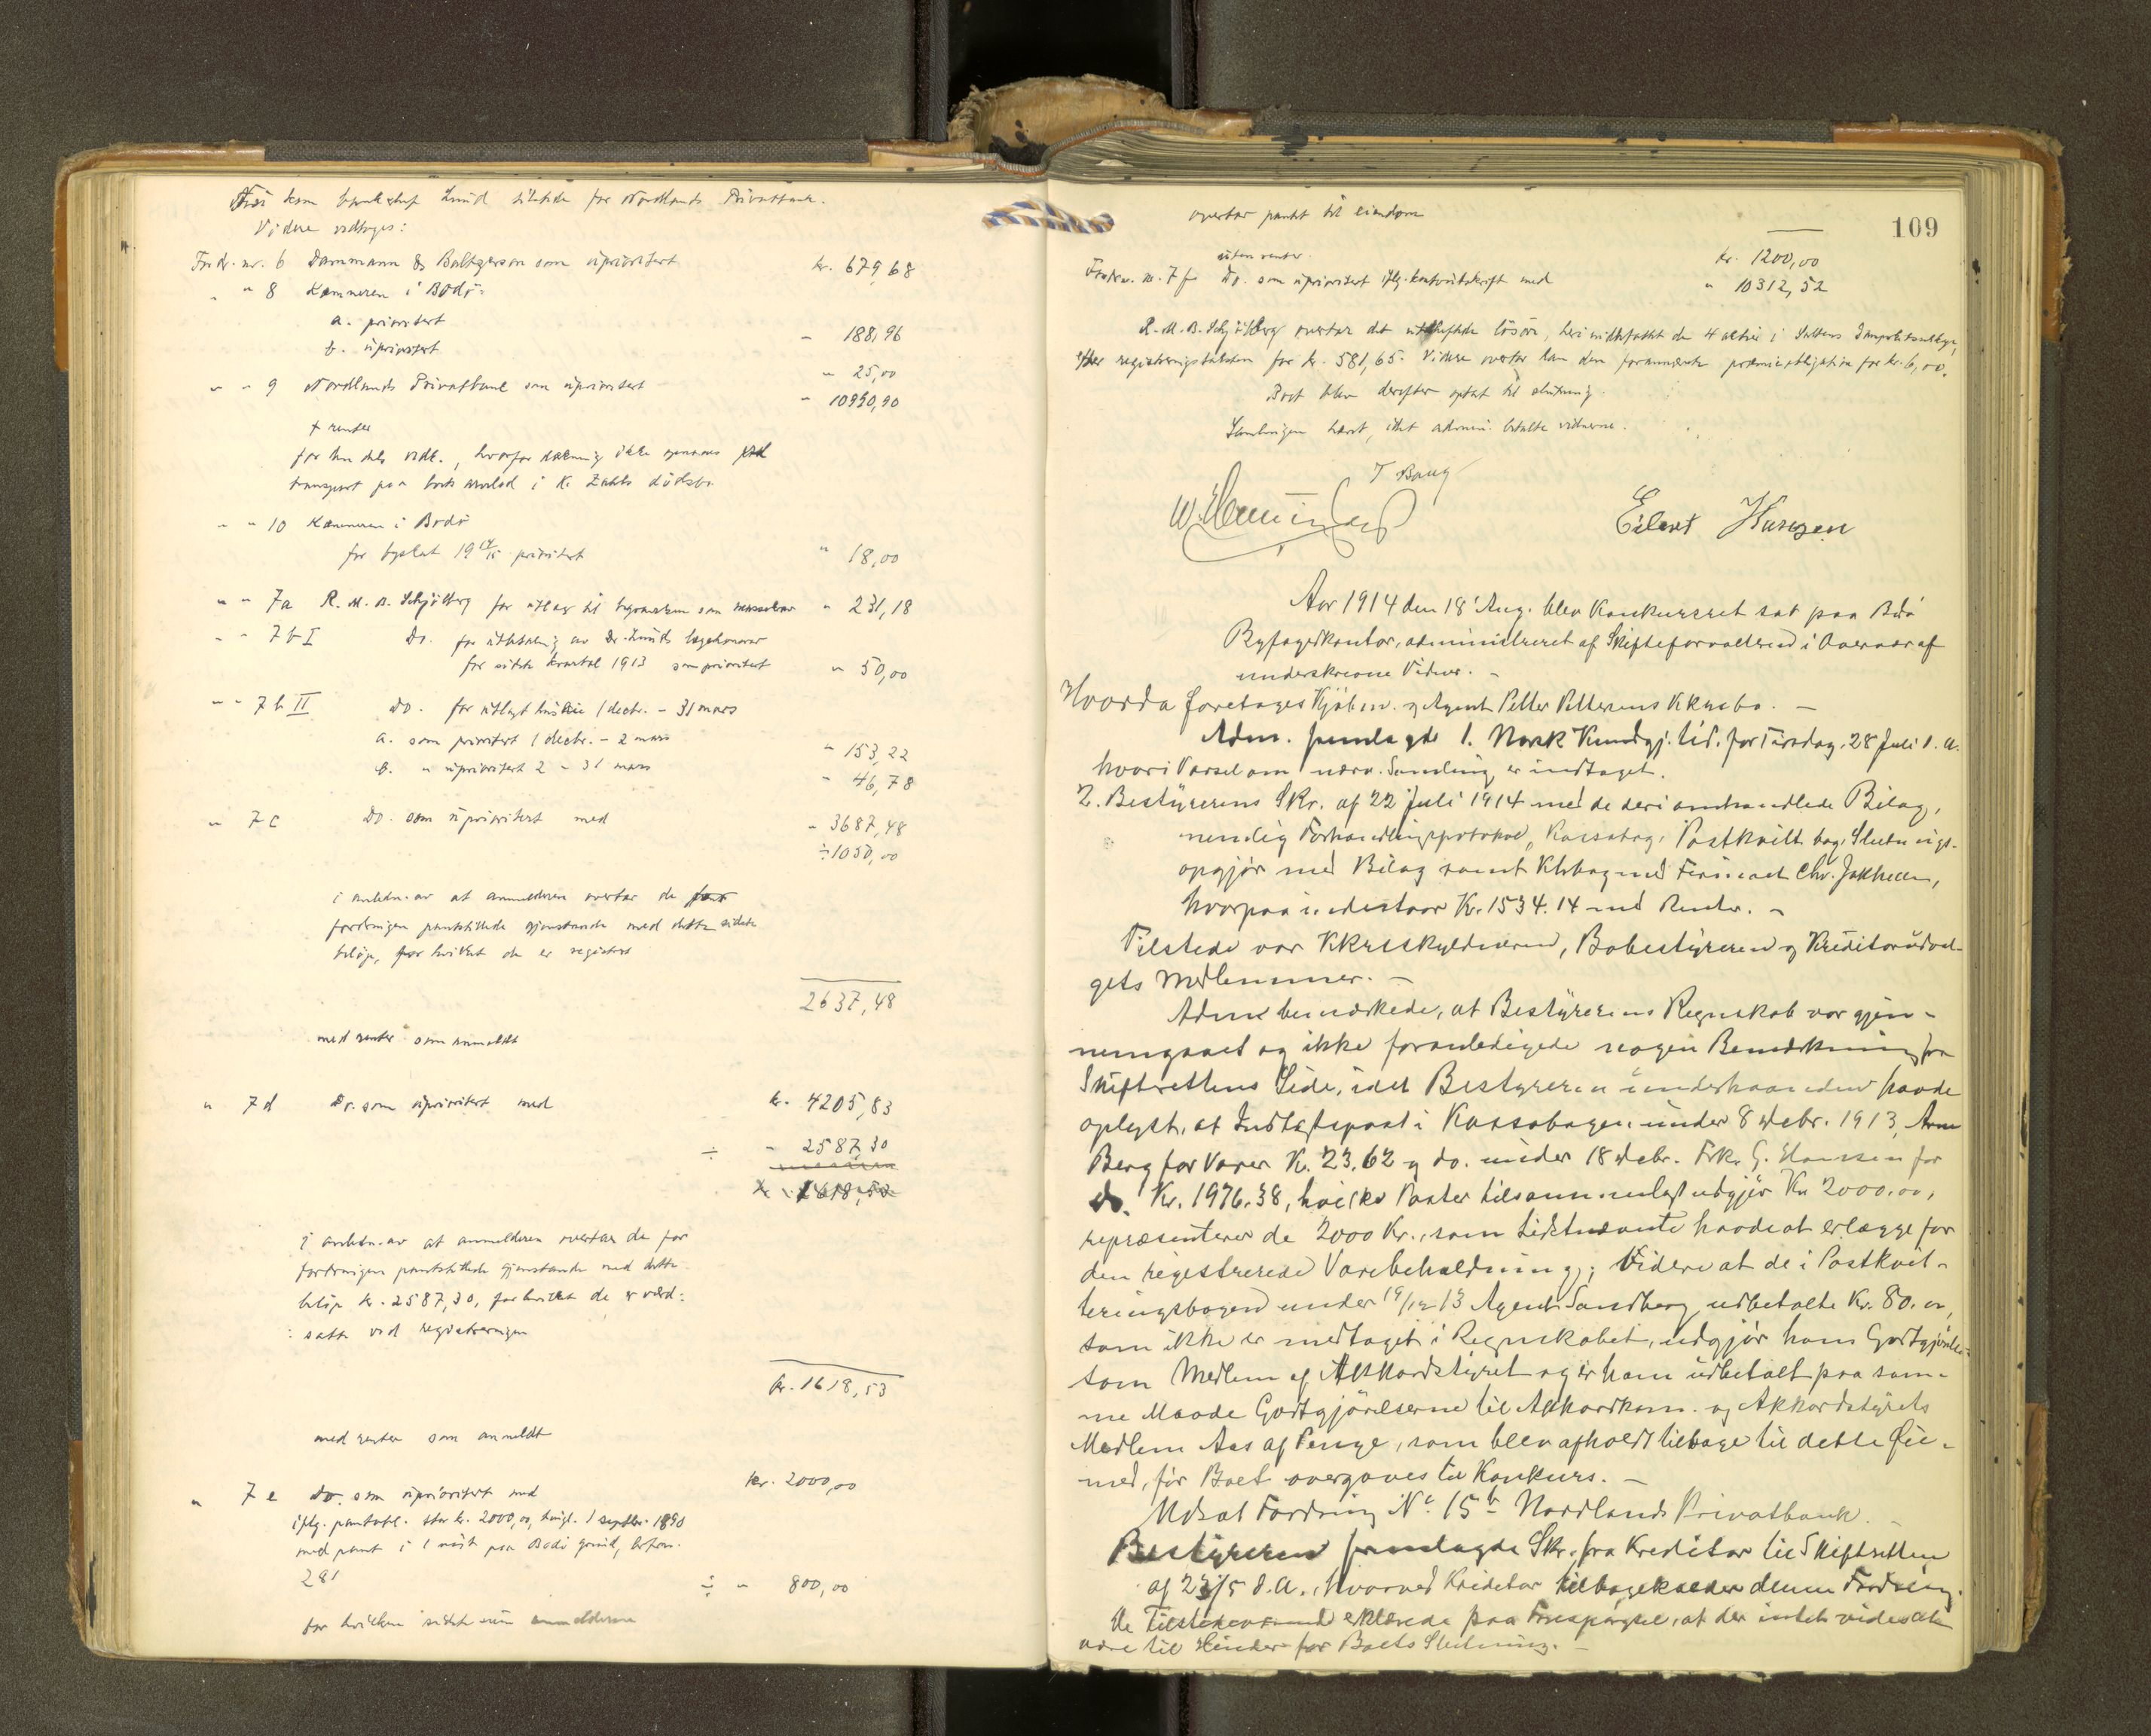 kom banksjef Lund tilstede for Nordlands Privatbank.
Videre vedtoges:
Fordr. nr. 6 Dammann & Baltzersen som uprioritert kr. 679,68
" " 8 Kæmneren i Bodø:
a. prioritert " 188,96
b. uprioritert " 25,00
" " 9 Nordlands Privatbank som uprioritert " 10950,90
+ renter
for den del vedk., hvorfor dækning ikke opnaaes ved
transport paa boets utlod i K. Zahls dødsbo
" " 10 Kæmneren i Bodø
for byskat 19 14/15 prioritert " 18,00
" " 7a R. M. B. Schjølberg for utlæg til begravelsen som " 231,18
" " 7 b I Do. for utbetaling av Dr. Lunds lægehonorar
for sidste kvartal 1913 som prioritert " 50,00
" " 7 b II Do. for utlagt husleie 1 decbr. - 31 mars
a. som prioritert 1 decbr. - 2 mars " 153,22
b. " uprioritert 2 - 31 mars " 46,78
" 7 c Do. som uprioritert med " 3687,48
÷ 1050,00
i anledn. av at anmelderen overtar de for
fordringen pantstillede gjenstande med dette sidste
beløp, for hvilket de er registrert
2637,48
med renter som anmeldt
" 7 d Do. som uprioritert med kr. 4205,83
÷ " 2587,30
1618,53
i anledn. av at anmelderen overtar de for
fordringen pantstillede gjenstande med dette
beløp kr. 2587,30, for hvilket de er værd-
:satte ved registreringen
kr. 1618,53
med renter som anmeldt
" 7 e do. som uprioritert med kr. 2000,00
iflg. pantobl. stor kr. 2000,00, tingl. 1 septbr. 1890
med pant i 1 paa Bodø grund,
281 ÷ " 800,00
for hvilken sidste sum anmelderen
overtar pantet til eiendom
109
kr. 1200,00
uten renter
Fordr. nr. 7 f Do. som uprioritert iflg. kontoutskrift med " 10312,52
R. M. B. Schjølberg overtar det utloddede løsøre, heri indbefattet de 4 aktier i Saltens
efter registreringstaksten for kr. 581,65. Videre overtar han den præmieobligation for kr. 6,00.
Boet blev derefter optat til slutning.
Samlingen hævet, idet admin. betalte vidnerne.
T Baug
Eilert Hansen
Aar 1914 den 18 Aug. blev Konkursret sat paa Bodø
Byfogedkontor, administreret af Skifteforvalteren i Overvær af
underskrevne Vidner. -
Hvorda foretoges Kjøbm. og Agent Petter Pettersens Kkrsbo. -
Adm. fremlagde 1. Norsk Kundgj. tid. for Tirsdag 28 Juli d. A.
hvori Varsel om nærv. Samling er indtaget.
2. Bestyrerens Skr. af 22 Juli 1914 med de deri omhandlede Bilag,
nemlig Forhandlingsprotokol, Kassabog, Postkvitt. bog, Slutnings-
opgjør med Bilag samt Kbog med Firmaet Chr. Jakhelln,
hvorpaa indestaar Kr. 1534.14 med Renter. -
Tilstede var Kkrsskyldneren, Bobestyreren og Kreditorudval-
gets Medlemmer. -
Adm bemærkede, at Bestyrerens Regnskab var gjen-
nemgaaet og ikke foranledigede nogen Bemærkning fra
Skifterettens Side, idet Bestyreren underhaanden havde
oplyst, at Indtægtspost i Kassabogen under 8 Debr. 1913, Arne
Berg for Varer Kr. 23.62 og do. under 18 Debr. Frk. G. Hansen for
do. Kr. 1976.38, hvilke Poster tilsammenlagt udgjør Kr 2000.00,
repræsenterer de 2000 Kr., som havde at erlægge for
den registrerede Varebeholdning; Videre at de i Postkvit-
teringsbogen under 19/12 13 Agent Sandberg udbetalte Kr. 80.00,
som ikke er medtaget i Regnskabet, udgjør hans Godtgjørelse
som Medlem af Akkordstyret og er ham udbetalt paa sam-
me Maade Godtgjørelserne til Akkordkom. og Akkordstyrets
Medlem Aas af Penge, som blev afholdt tilbage til dette Øie-
med, før Boet overgaves til Konkurs. -
Mdsat Fordring No 15b Nordlands Privatbank. -
Bestyreren fremlagde Skr. fra Kreditor til Skifteretten
af 23/5 d. A., hvorved Kreditor tilbagekalder denne Fordring.
De Tilstedeværende erklærede paa Forespørgsel, at der intet vides at
være til Hinder for Boets Slutning. -